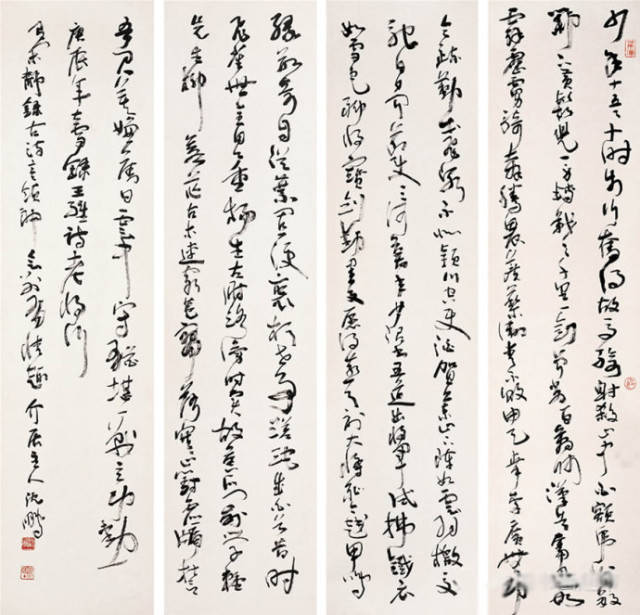 少年十五二十时步行夺得胡马骑射杀山中白额虎肯数
邺下黄须儿一身转战三千里一剑曾当百万师汉兵奋迅如
霹雳虏骑奔腾畏蒺藜卫青不败由天幸李广无功
令疏勒出飞泉不似颍川空使酒贺兰山下阵如云羽檄交
驰日夕闻节使三河募年少诏书五道出将军试拂铁衣
如雪色聊持宝剑动星文愿得燕弓射大将耻令越甲鸣
缘数奇自从弃置便衰朽世事蹉跎成白首昔时
飞雀无全目今日垂杨生左肘路旁时卖故侯瓜门前学种
先生柳苍茫古木连穷巷寥落寒山对虚牖誓
吾君莫嫌旧日云中守犹堪一战立功勋
庚辰年录王维诗老将行
静录古诗介居主人沈鹏